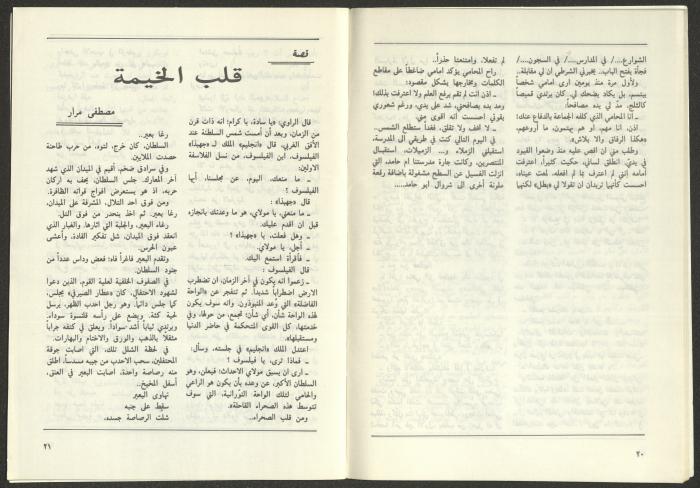 الشوارع.../ في المدارس..../ في السجون..../
فجأة يفتح الباب.. يخبرني الشرطي ان لي مقابلة.
ولأول مرة منذ يومين ارى امامي شخصاً
يبتسم بل يكاد يضحك لي. كان يرتدي قميصاً
كالثلج. مدّ لي يده مصافحاً.
ـ أنا المحامي الذي كلفه الجماعة بالدفاع عنك!
اذن. انا مهم، او هم يهتمون. ما أروعهم.
«هكذا الرفاق والا بلاش».
وطلب مني ان اقص عليه منذ وضعوا القيود
في يدي. انطلق لساني، حكيت كثيراً، اعترفت
أمامه إنني لم اعترف بما لم افعله. لمعت عيناه،
احست كأنهما تريدان ان تقولا لي «بطل» لكنهما
لم تفعلا. وامتنعتا حذراً..
راح المحامي يؤكد امامي ضاغطاً على مقاطع
الكلمات ومخارجها بشكل مقصود:
ـ اذن انت لم تقم برفع العلم ولا اعترفت بذلك!
وعد بمده يصافحني، شد على يدي، ورغم شعوري
بقوتي احسست انه اقوى مني.
ـ لا تخف ولا تقلق، فغداً ستطلع الشمس..
في اليوم التالي كنت في طريقي الى المدرسة،
استقبلني الزملاء ... الزميلات، أستقبال
المنتصرين، وكانت جارة مدرستنا ام حامد، التي
انزلت الغسيل عن السطح مشغولة باضافة رقعة
ملونة أخرى الى شروال ابو حامد.....
٢٠
قصة
قلب الخيمة
مصطفى مرار
قال الراوي: «يا سادة، يا كرام» انه ذات قرن
من الزمان، وبعد أن أمست شمس السلطنة عند
الأفق الغربي، قال «انجليم» الملك لـ «جهيذا»
الفيلسوف، ابن الفيلسوف، من نسل الفلاسفة
الاولين:
ـ ما منعك، اليوم، عن مجلسنا، أيها
الفيلسوف؟
قال «جهيذا»:
ـ ما منعني، يا مولاي، هو ما وعدتك بانجازه
قبل ان أقدم عليك.
ـ وهل فعلت، يا «جهيذا»؟
ـ أجل، يا مولاي.
ـ فأقرأه استمع اليك.
قال الفيلسوف:
ـ زعموا أنه يكون في آخر الزمان، ان تضطرب
الارض اضطراباً شديداً. ثم تنفجر عن «الواحة
الفاضلة» التي وعد المنبوذون. وانه سوف يكون
لهذه الواحة شأن، أي شأن؛ تجمع، من حولها، وفي
خدمتها، كل القوى المتحكمة في حاضر الدنيا
ومستقبلها.
اعتدل الملك «انجليم» في جلسته، وسأل:
ـ فماذا ترى، يا فيلسوف؟
ـ ارى ان يسبق مولاي الاحداث؛ فيعلن، وهو
السلطان الأكبر، عن وعده بأن يكون هو الراعي
والحامي لتلك الواحة التورانية، التي سوف
تتوسط هذه الصحراء القاحلة».
ومن قلب الصحراء..
رغا بعير..
السلطان، كان خرج، لتوه، من حرب طاحنة
حصدت الملايين.
وفي سرادق ضخم، أقيم في الميدان الذي شهد
آخر المعارك. جلس السلطان، يحف به اركان
حربه، اذ هو يستعرض افواج قواته الظافرة.
ومن فوق احد التلال، المشرفة على الميدان،
رغا بعير. ثم اخذ ينحدر من فوق التل.
رغاء البعير، والجلبة التي اثارها، والغبار الذي
انعقد فوق الميدان، شل تفكير القادة، وأعشى
عيون الحرس.
وتقدم البعير فاغراً فاه؛ فعض وداس عدداً من
جنود السلطان.
في الصفوف الخلفية لعلية القوم، الذين دعوا
لشهود الاحتفال، كان «عطار الصيرفي» يجلس،
كما جلس دائماً. وهو رجل أحدب الظهر، يرسل
لحية كثة. ويضع على رأسه قلنسوة سوداء.
ويرتدي ثياباً أشد سواداً. ويعلق في كتفه جراباً
مثقلاً بالذهب والورق والاختام والبهارات.
في لحظة الشلل تلك، التي اصابت جوقة
المحتفلين، سحب الاحدب من جيبه مسدساً، اطلق
منه رصاصة واحدة، اصابت البعير في العنق،
أسفل المخيخ..
تهاوى البعير
سقط على جنبه
شلت الرصاصة جسده.
٢١